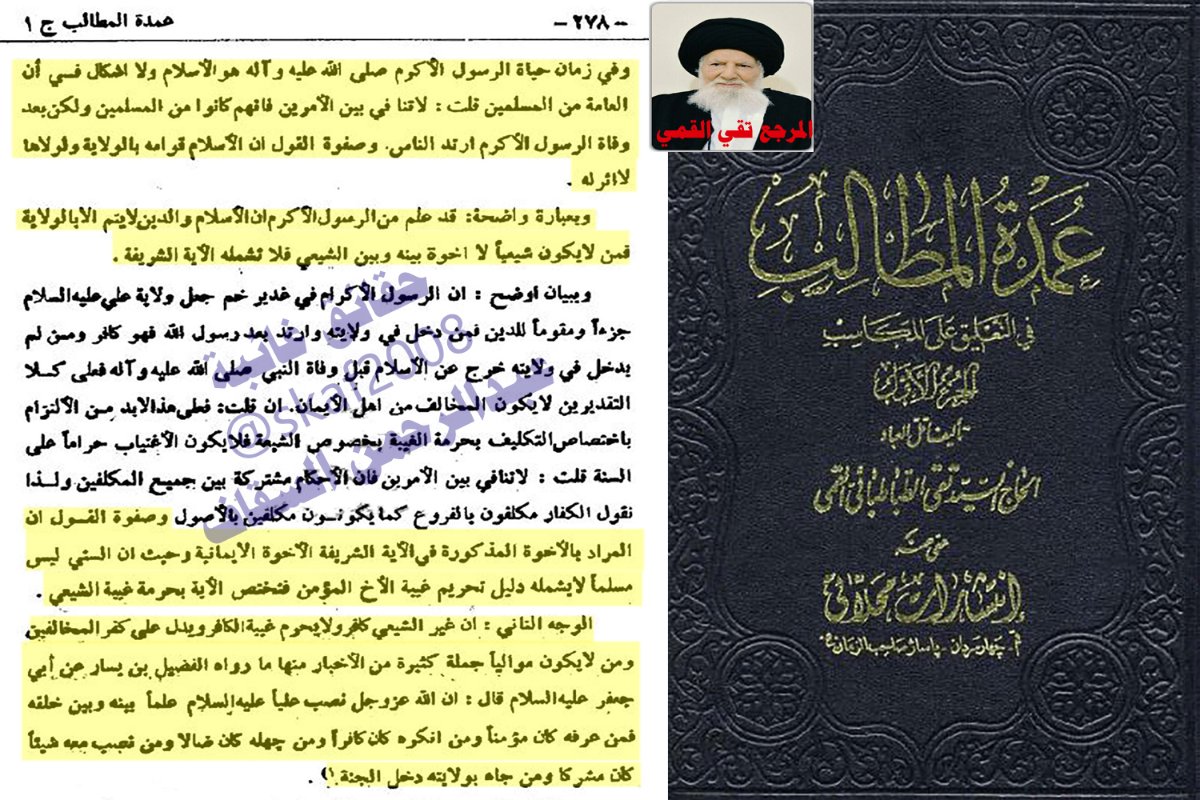 - ٢٧٨ -
عمدة المطالب ج ١
وفي زمان حياة الرسول الأكرم صلى الله عليه وآله هو الأسلام ولا اشكال فسي أن
العامة من المسلمين قلت: لاتنا في بين الأمرين فانهم كانوا من المسلمين ولكن بعد
وفاة الرسول الأكرم ارتد الناس. وصفوة القول ان الأسلام قوامه بالولاية ولولاها
لااثر له .
وبعبارة واضحة: قد علم من الرسول الأكرم ان الأسلام والدين لايتم الا بالولاية
فمن لايكون شيعياً لا اخوة بينه وبين الشيعي فلا تشمله الآية الشريفة .
وببيان اوضح : ان الرسول الأكرام في غدير خم جعل ولاية علي عليه السلام
جزءاً ومقوماً للدين فمن دخل في ولايته وارتد بعد رسول الله فهو كافر ومسن لم
يدخل في ولايته خرج عن الأسلام قبل وفاة النبي صلى الله عليه وآله فعلى كسلا
التقديرين لايكون المخالف من اهل الأيمان. ان قلت: فعلى هذا لابد مسن الألتزام
باختصاص التكليف بحرمة الغيبة بخصوص الشيعة فلايكون الأغتياب حراماً على
السنة قلت : لاتنافي بين الأمرين فان الأحكام مشتركة بين جميع المكلفين ولسذا
نقول الكفار مكلفون بالفروع كما يكونسون مكلفين بالأصول وصفوة القسول ان
المراد بالأخوة المذكورة في الآية الشريفة الأخوة الأيمانية وحيث ان السني ليس
مسلماً لايشمله دليل تحريم غيبة الأخ المؤمن فتختص الآية بحرمة غيبة الشيعي .
الوجه الثاني : ان غير الشيعي كافر ولا يحرم غيبة الكافر ويدل على كفر المخالفين
ومن لايكون موالياً جملة كثيرة من الأخبار منها ما رواه الفضيل بن يسار عن أبي
جعفر عليه السلام قال : ان الله عز وجل نصب علياً عليه السلام علماً بينه وبين خلقه
فمن عرفه كان مؤمناً ومن انكره كان كافراً ومن جهله كان ضالا ومن نصب معه شيئاً
كان مشركا ومن جاء بولايته دخل الجنة (١) .
حقائق غايبة
@skaf2008
عبدالرحمن السقاف
المرجع تقي القمي
عمدة المطالب
في التعليق على المكاسب
الجزء الأول
تأليف أقل العباد
الحاج السيد تقي الطباطبائي القمي
عفي عنه
انتشارات محلاتي
قم - چهارمردان - پاساژ صاحب الزمان